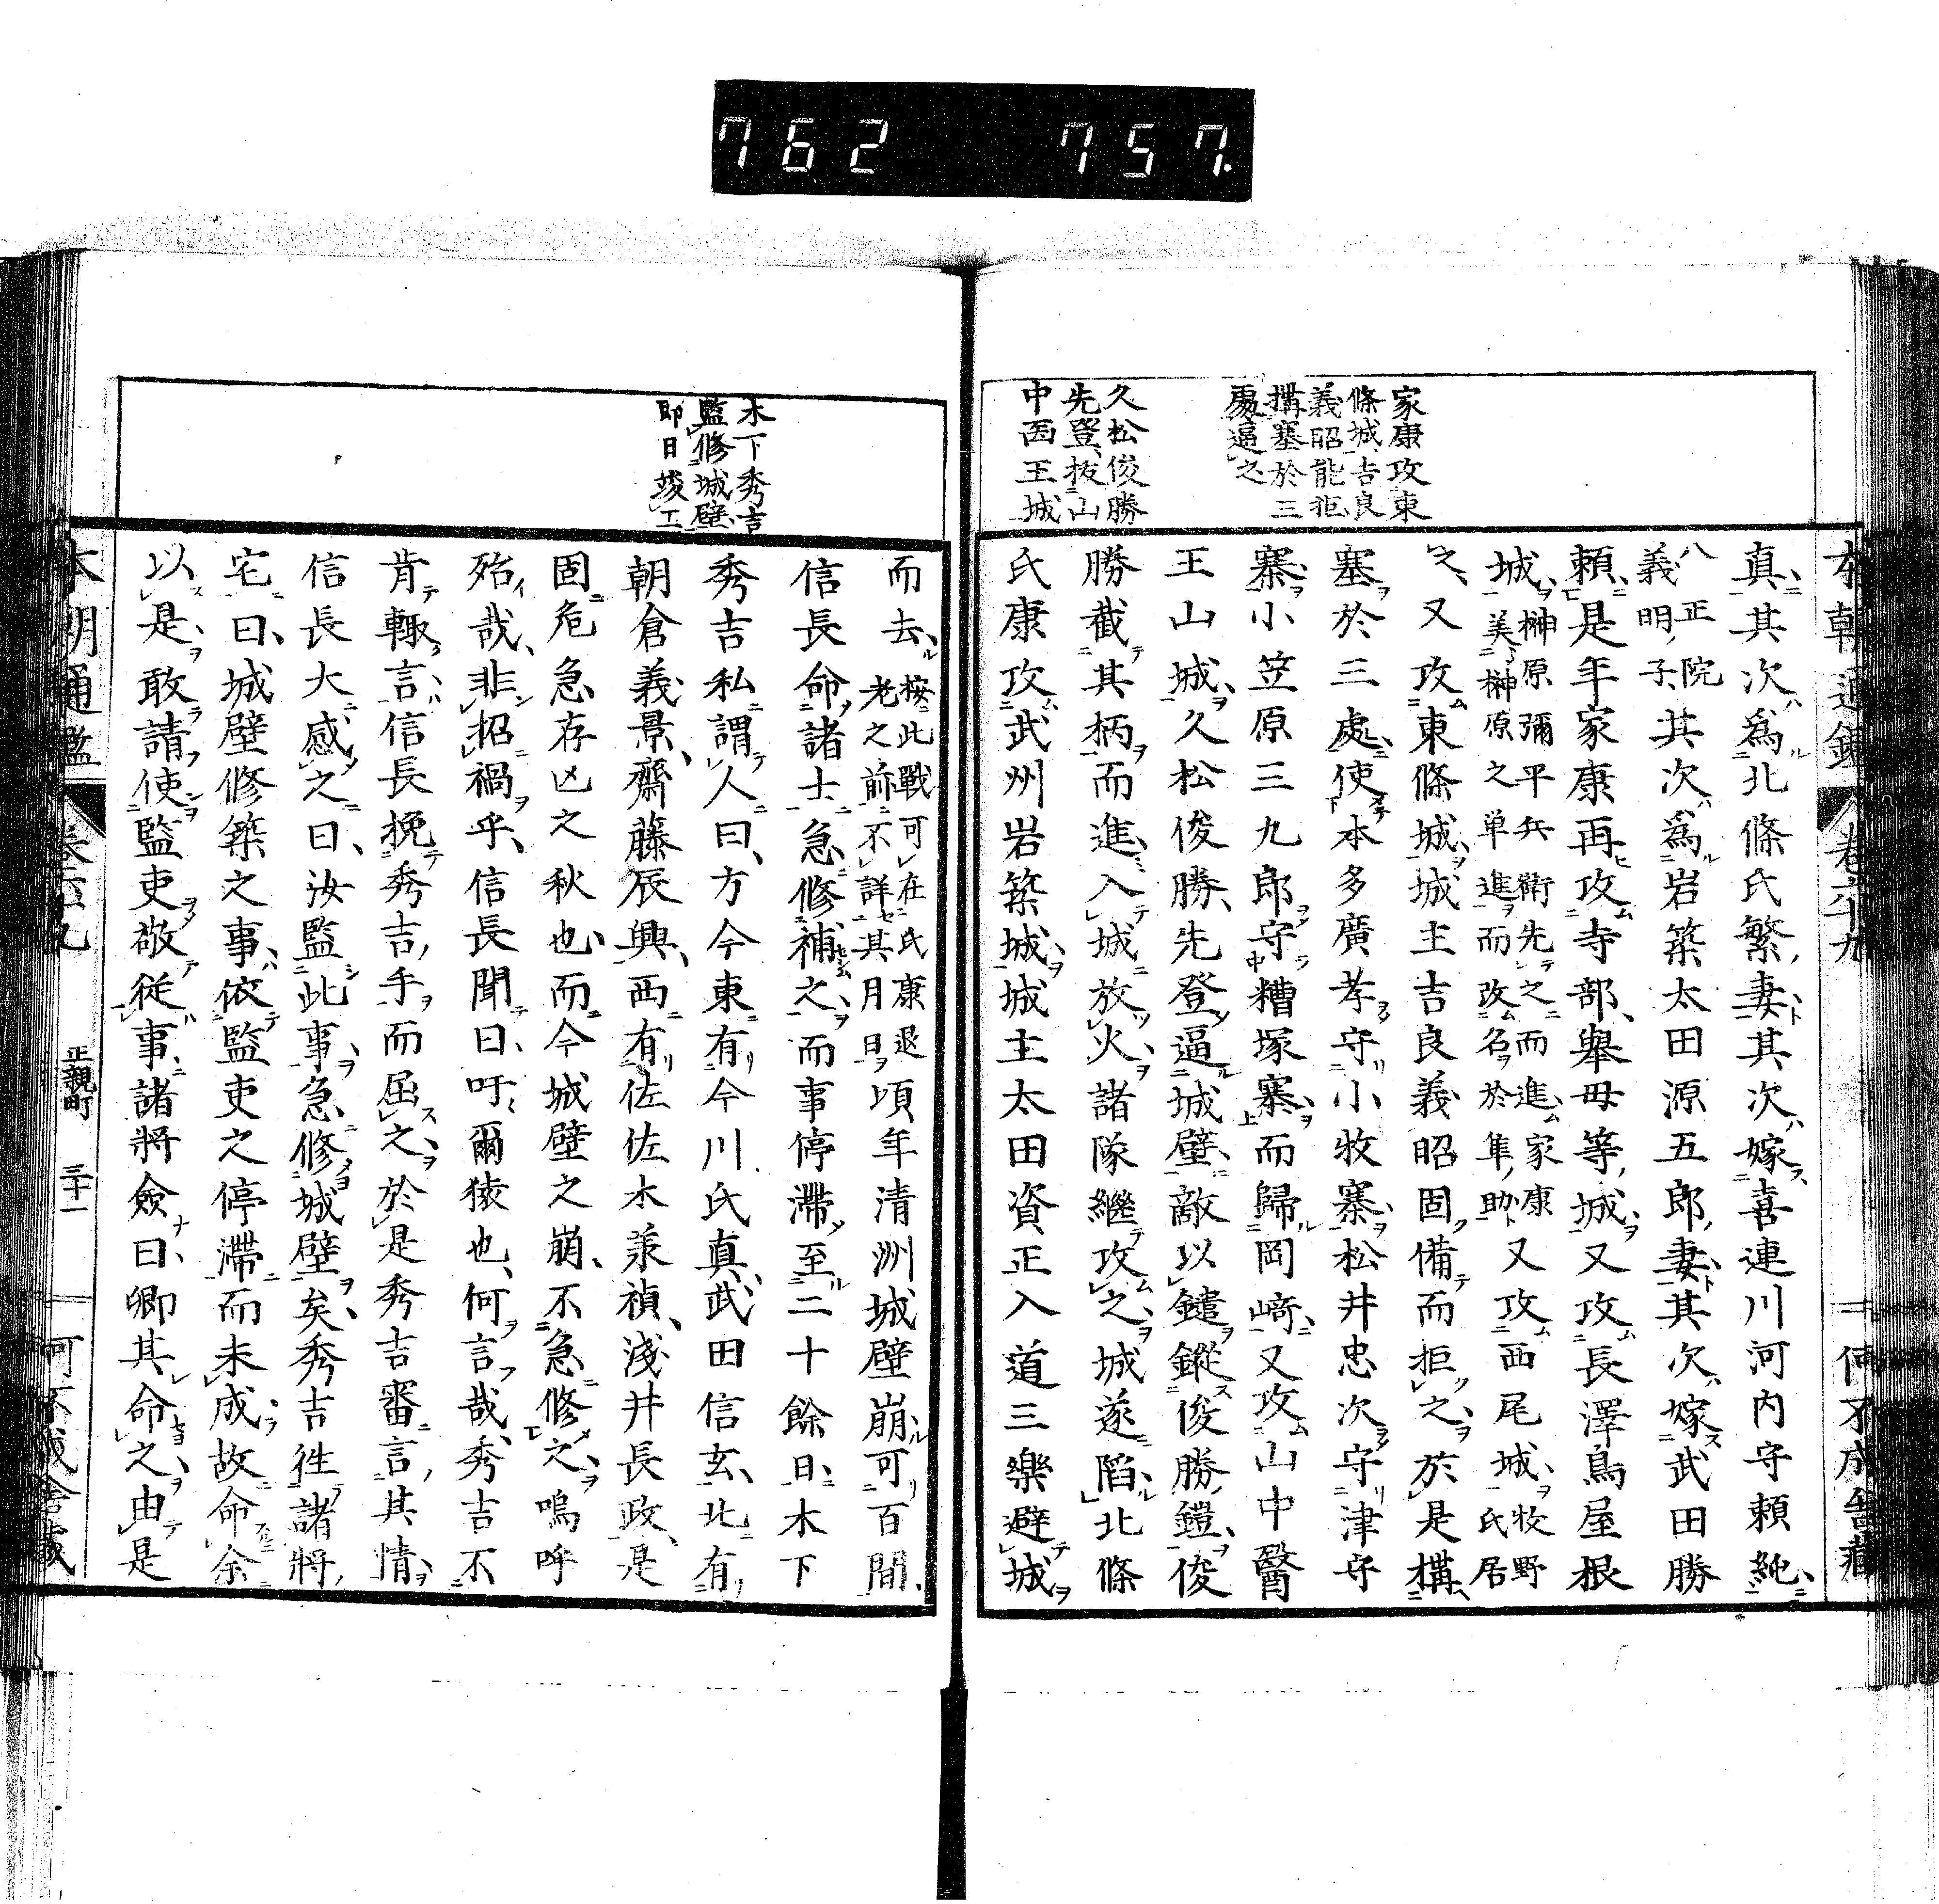 762 757.
家康攻東
條城、吉良
義昭能拒、
搆塞於三
處逼之
久松俊勝
先登、拔山
中西王城
本朝通鑑 卷六十九 何不成舎藏
真、其次爲北條氏繁妻、其次嫁喜連川河内守頼純、
八正院
義明子、其次爲岩築太田源五郎妻、其次嫁武田勝
頼、是年家康再攻寺部、舉母等城、又攻長澤鳥屋根
城、榊原彌平兵衛先之而進、家康
美榊原之単進而改名於隼助又攻西尾城、牧野
氏居
之、又攻東條城、城主吉良義昭固備而拒之、於是搆
塞於三處、使本多廣孝守小牧寨、松井忠次守津守
寨、小笠原三九郎守糟塚寨而歸岡﨑、又攻山中醫
王山城、久松俊勝、先登逼城壁、敵以鑓鏦俊勝鎧、俊
勝截其柄而進、入城放火、諸隊繼攻之、城遂陷、北條
氏康攻武州岩築城、城主太田資正入道三樂避城
木下秀吉
監修城壁、
即日竣工
而去、按此戰可在氏康退
老之前、不詳其月日頃年清洲城壁崩可百間、
信長命諸士急修補之、而事停滯至二十餘日、木下
秀吉私謂人曰、方今東有今川氏真、武田信玄、北有
朝倉義景、齋藤辰興、西有佐佐木義禎、淺井長政、是
固危急存亡之秋也、而今城壁之崩、不急修之、嗚呼
殆哉、非招禍乎、信長聞曰、吁爾猿也、何言哉、秀吉不
肯輙言、信長挽秀吉手而屈之、於是秀吉審言其情、
信長大感之曰、汝監此事、急修城壁矣、秀吉徃諸將
宅曰、城壁修築之事、依監吏之停滯而未成、故命余
以是、敢請使監吏敬從事、諸將僉曰、卿其命之、由是
本朝通鑑 卷六十九 正親町 三十一 何不成舎藏